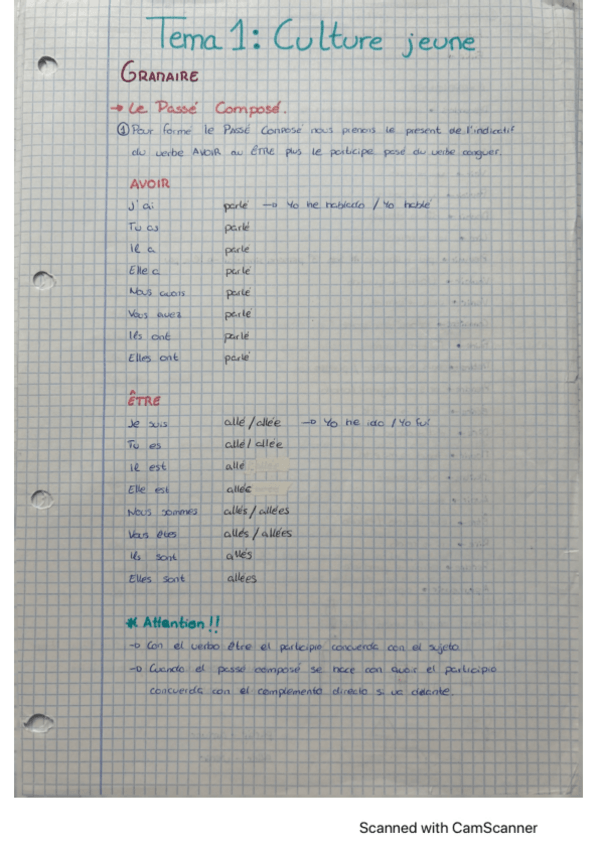 Tema 1: Culture jeune
GRAMAIRE
→ Le Passé Composé.
① Pour formé le Passé Composé nous prenons le present de l'indicatif
du verbe AVOIR ou ÊTRE plus le participe pasé du verbe conguer.
AVOIR
J'ai parlé → Yo he hablado / Yo hablé
Tu as parlé
Il a parlé
Elle a parlé
Nous avons parlé
Vous avez parlé
Ils ont parlé
Elles ont parlé
ÊTRE
Je suis allé / allée → Yo he ido / Yo fui
Tu es allé / allée
Il est allé
Elle est allée
Nous sommes allés / allées
Vous êtes allés / allées
Ils sont allés
Elles sont allées
* Attention!!
→ Con el verbo être el participio concuerda con el sujeto
→ Cuando el passé composé se hace con avoir el participio
concuerda con el complemento directo si va delante.
Scanned with CamScanner